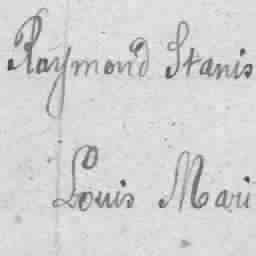 Raymond Stanis
Louis Mari